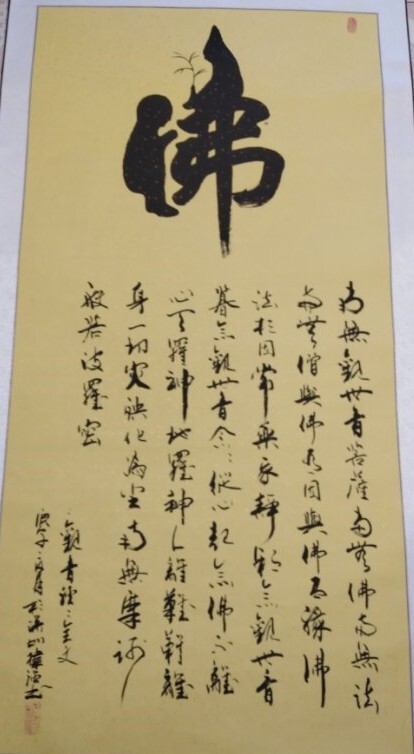 佛
南無觀世音菩薩南無佛南無法
南無僧與佛有因與佛有緣佛
法於因常樂我靜朝念觀世音
暮念觀世音念〻從心起念佛不離
心天羅神地羅神人離難難離
身一切災殃化為塵南無摩訶
般若波羅密
觀音文
庚子月於深圳